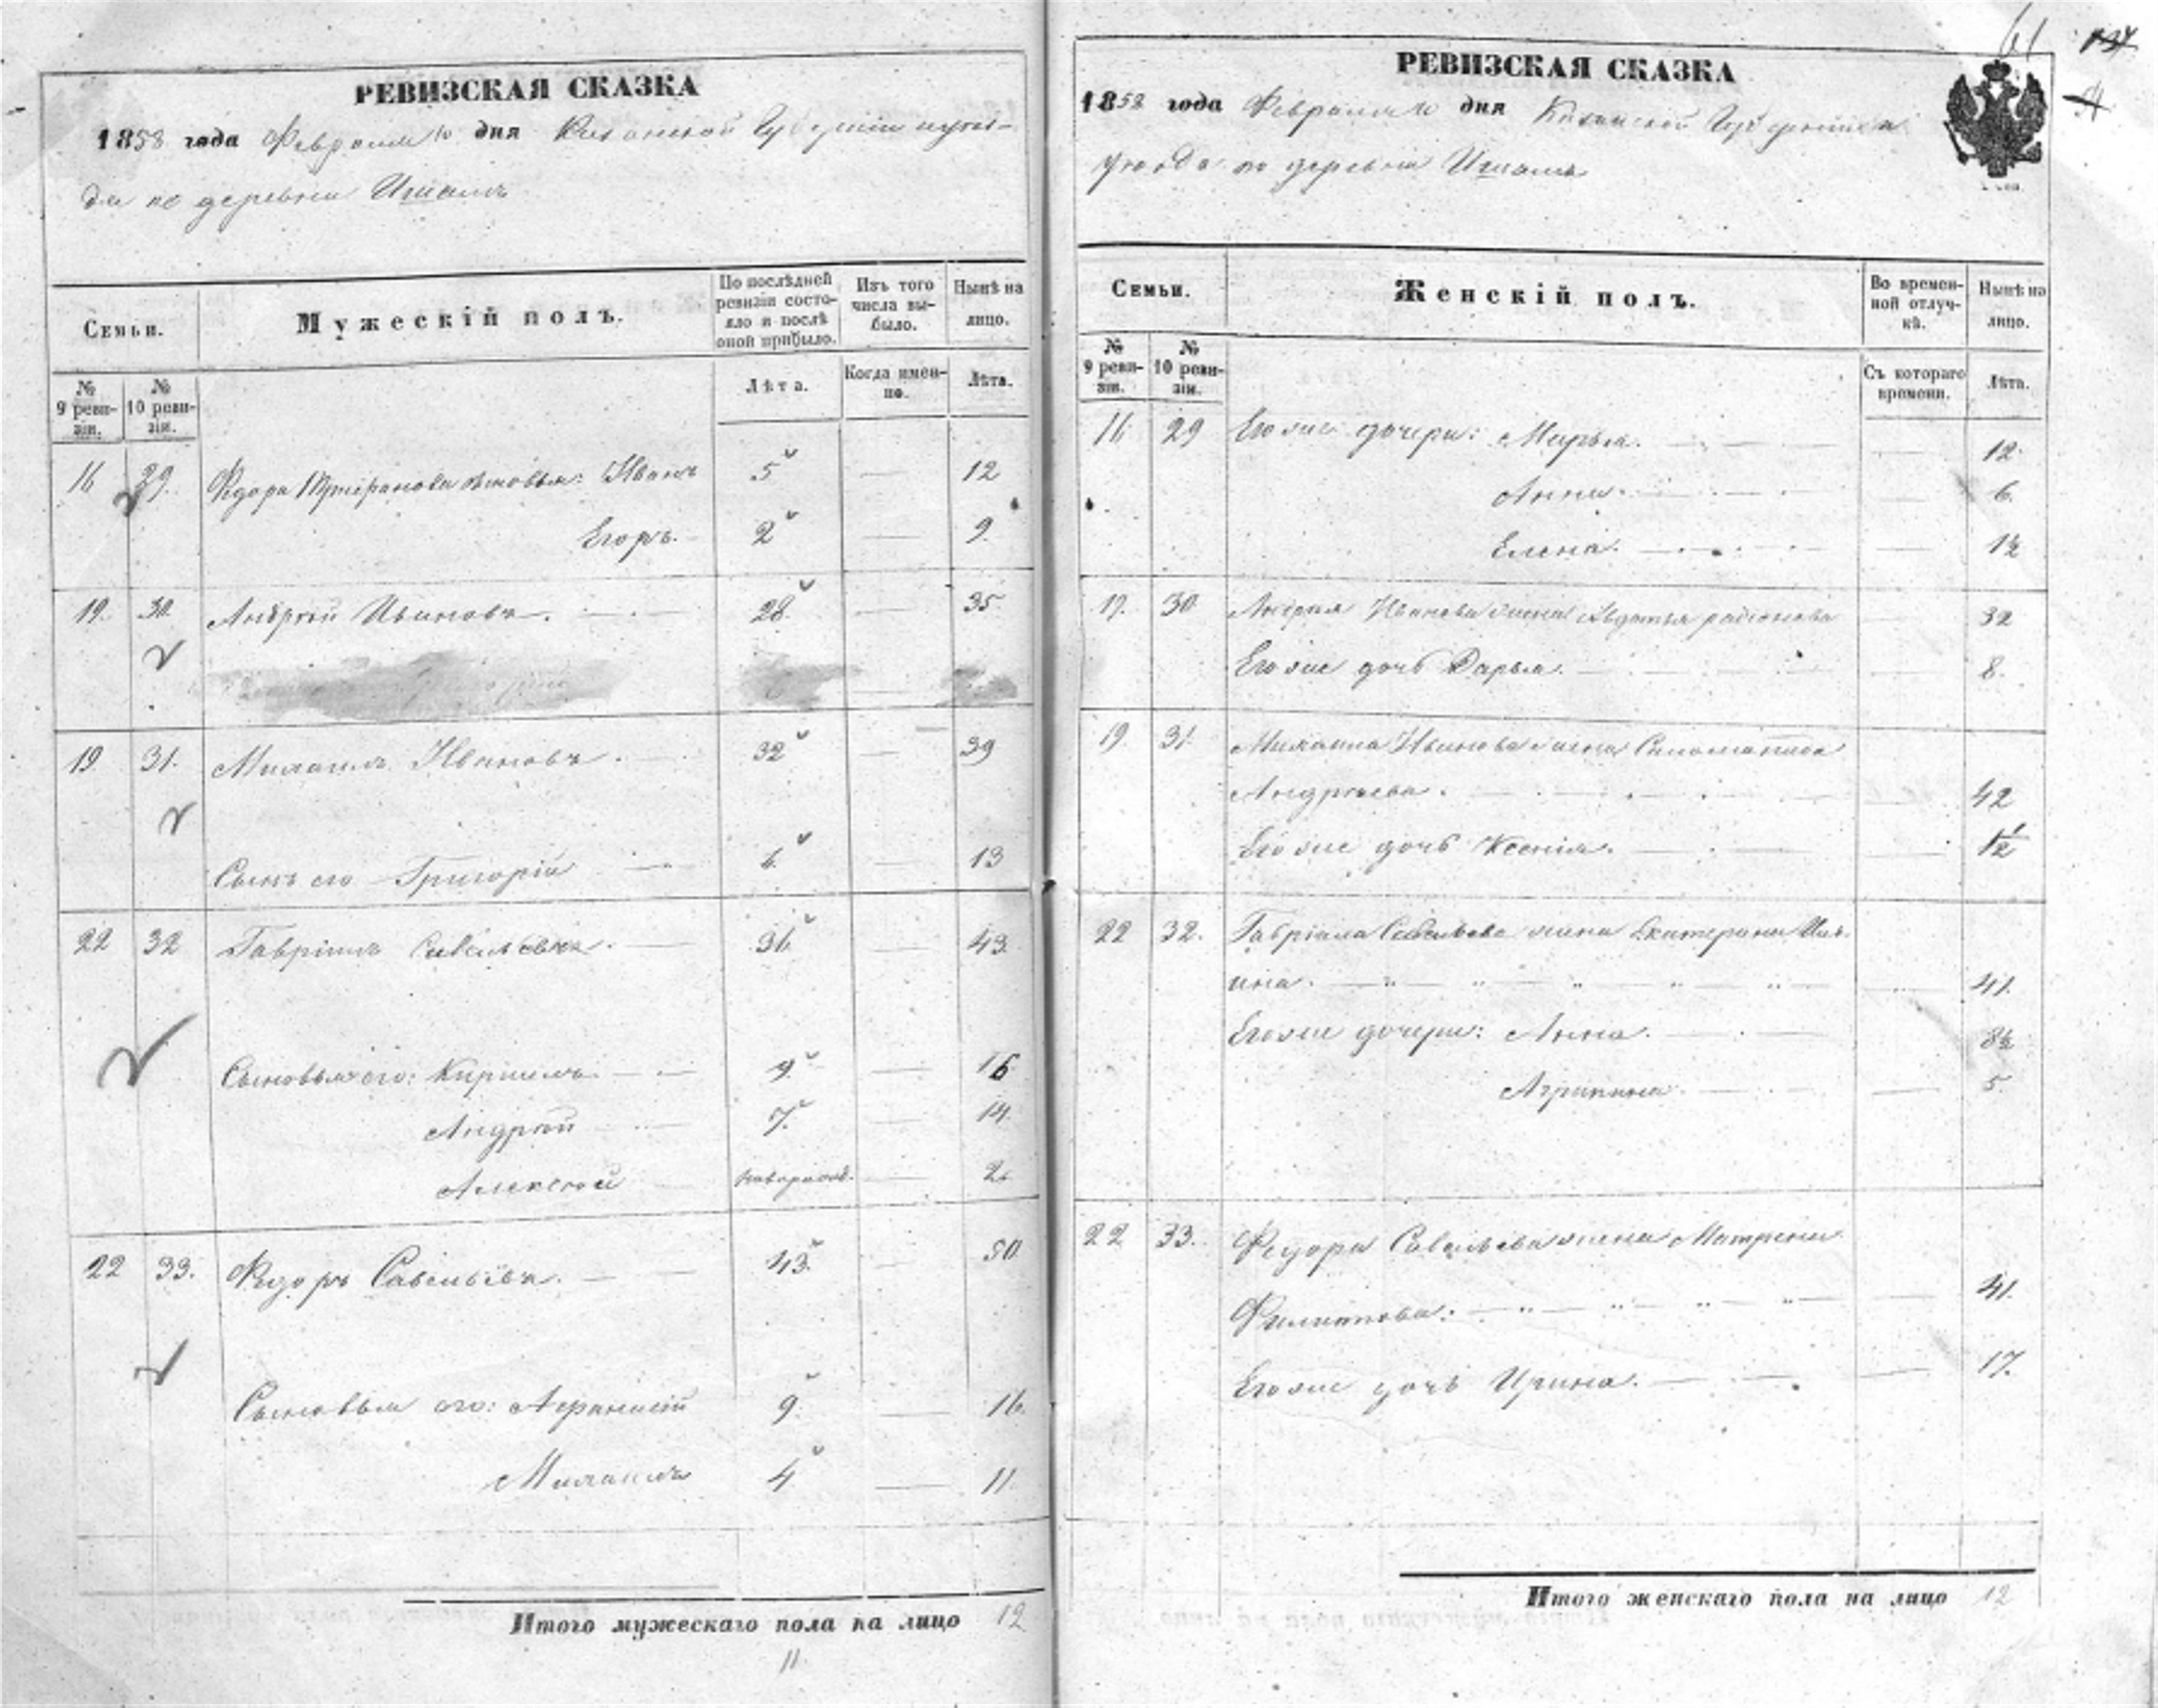 РЕВИЗСКАЯ СКАЗКА
1858 года Февраля 10 дня Казанской Губерніи
да по деревни
Семьи.
Мужескій полъ.
По послѣдней ревизіи состояло и послѣ оной прибыло.
Изъ того числа выбыло.
Нынѣ на лицо.
№ 9 ревизіи.
№ 10 ревизіи.
Лѣта.
Когда именно.
Лѣта.
16 29. Федора сыновья: Иванъ 5 — 12
Егоръ. 2 — 9.
19. 30. Андрей Ивановъ. 28. — 35
19 31. Михаилъ Ивановъ. 32 — 39
Сынъ его Григорій 6. — 13
22 32 Гавріилъ Савельевъ. 36. — 43.
Сыновья его: Кирилъ 9. — 16
Андрей 7. — 14.
Алексей новорожд. — 2.
22 33. Федоръ Савельевъ. 43. — 50
Сыновья его: Афанасій 9. — 16.
Михаилъ 4 — 11.
Итого мужескаго пола на лицо 12
11
61
РЕВИЗСКАЯ СКАЗКА
1858 года Февраля 10 дня Казанской Губерніи
уезда по деревни
Семьи.
Женскій полъ.
Во временной отлучкѣ.
Нынѣ на лицо.
№ 9 ревизіи.
№ 10 ревизіи.
Съ котораго времени.
Лѣта.
16 29 Его же дочери: Марья. — 12.
Анна. — 6.
Елена. — 1½
19. 30 Андрея Иванова жена Авдотья 32
Его же дочь Дарья. — 8.
19 31. Михаила Иванова жена
Андреева. — 42
Его же дочь Ксенія. — 1½
22 32. Гавріила Савельева жена Екатерина Иль-
ина. — 41.
Его же дочери: Анна. 8½
Агрипина — 5.
22 33. Федора Савельева жена Матрена
Филипова: — 41.
Его же дочь Ирина. — 17.
Итого женскаго пола на лицо 12